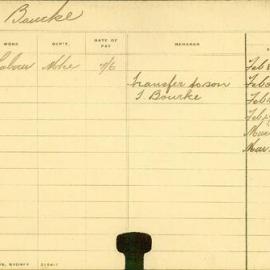 Bourke
WORK DEP'T. RATE OF PAY REMARKS
Labour 7/6 Feb
transfer to son Feb
T. Bourke Feb
Feb
Mar
SYDNEY